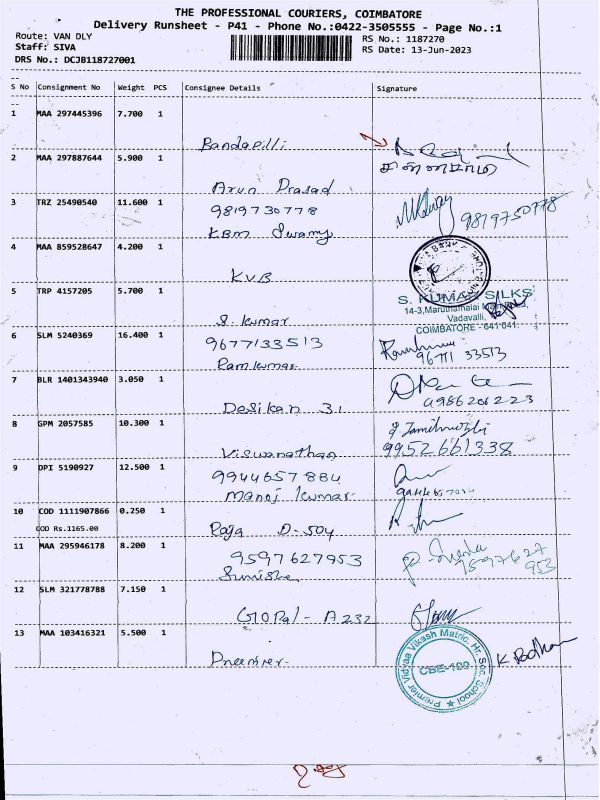 THE PROFESSIONAL COURIERS, COIMBATORE
Delivery Runsheet - P41 - Phone No.:0422-3505555 - Page No.:1
Route: VAN DLY
Staff: SIVA
DRS No.: DCJB118727001
RS No.: 1187270
RS Date: 13-Jun-2023
S No Consignment No Weight PCS Consignee Details Signature
1 MAA 297445396 7.700 1
Bandapilli
2 MAA 297887644 5.900 1
Arun Prasad
3 TRZ 25490540 11.600 1 9819730778
9819750778
KBM Swamy
4 MAA 859528647 4.200 1
KVB
5 TRP 4157205 5.700 1
S. KUMAR SILKS
14-3, Maruthamalai
Vadavalli,
COIMBATORE - 641 041.
S. Kumar
6 SLM 5240369 16.400 1 9677133513
96771 33513
Ramkumar
7 BLR 1401343940 3.050 1
Desikan 31
8 GPM 2057585 10.300 1
9952661338
Viswanathan
9 DPI 5190927 12.500 1 9944657884
Manoj Kumar
10 COD 1111907866 0.250 1
COD Rs.1165.00
Raja D-504
11 MAA 295946178 8.200 1 9597627953
9597627
953
12 SLM 321778788 7.150 1
GOPal - A232
13 MAA 103416321 5.500 1
Premier
Premier Vidyaa Vikash Matric. Hr. Sec. School
CBE-109
K Radhan